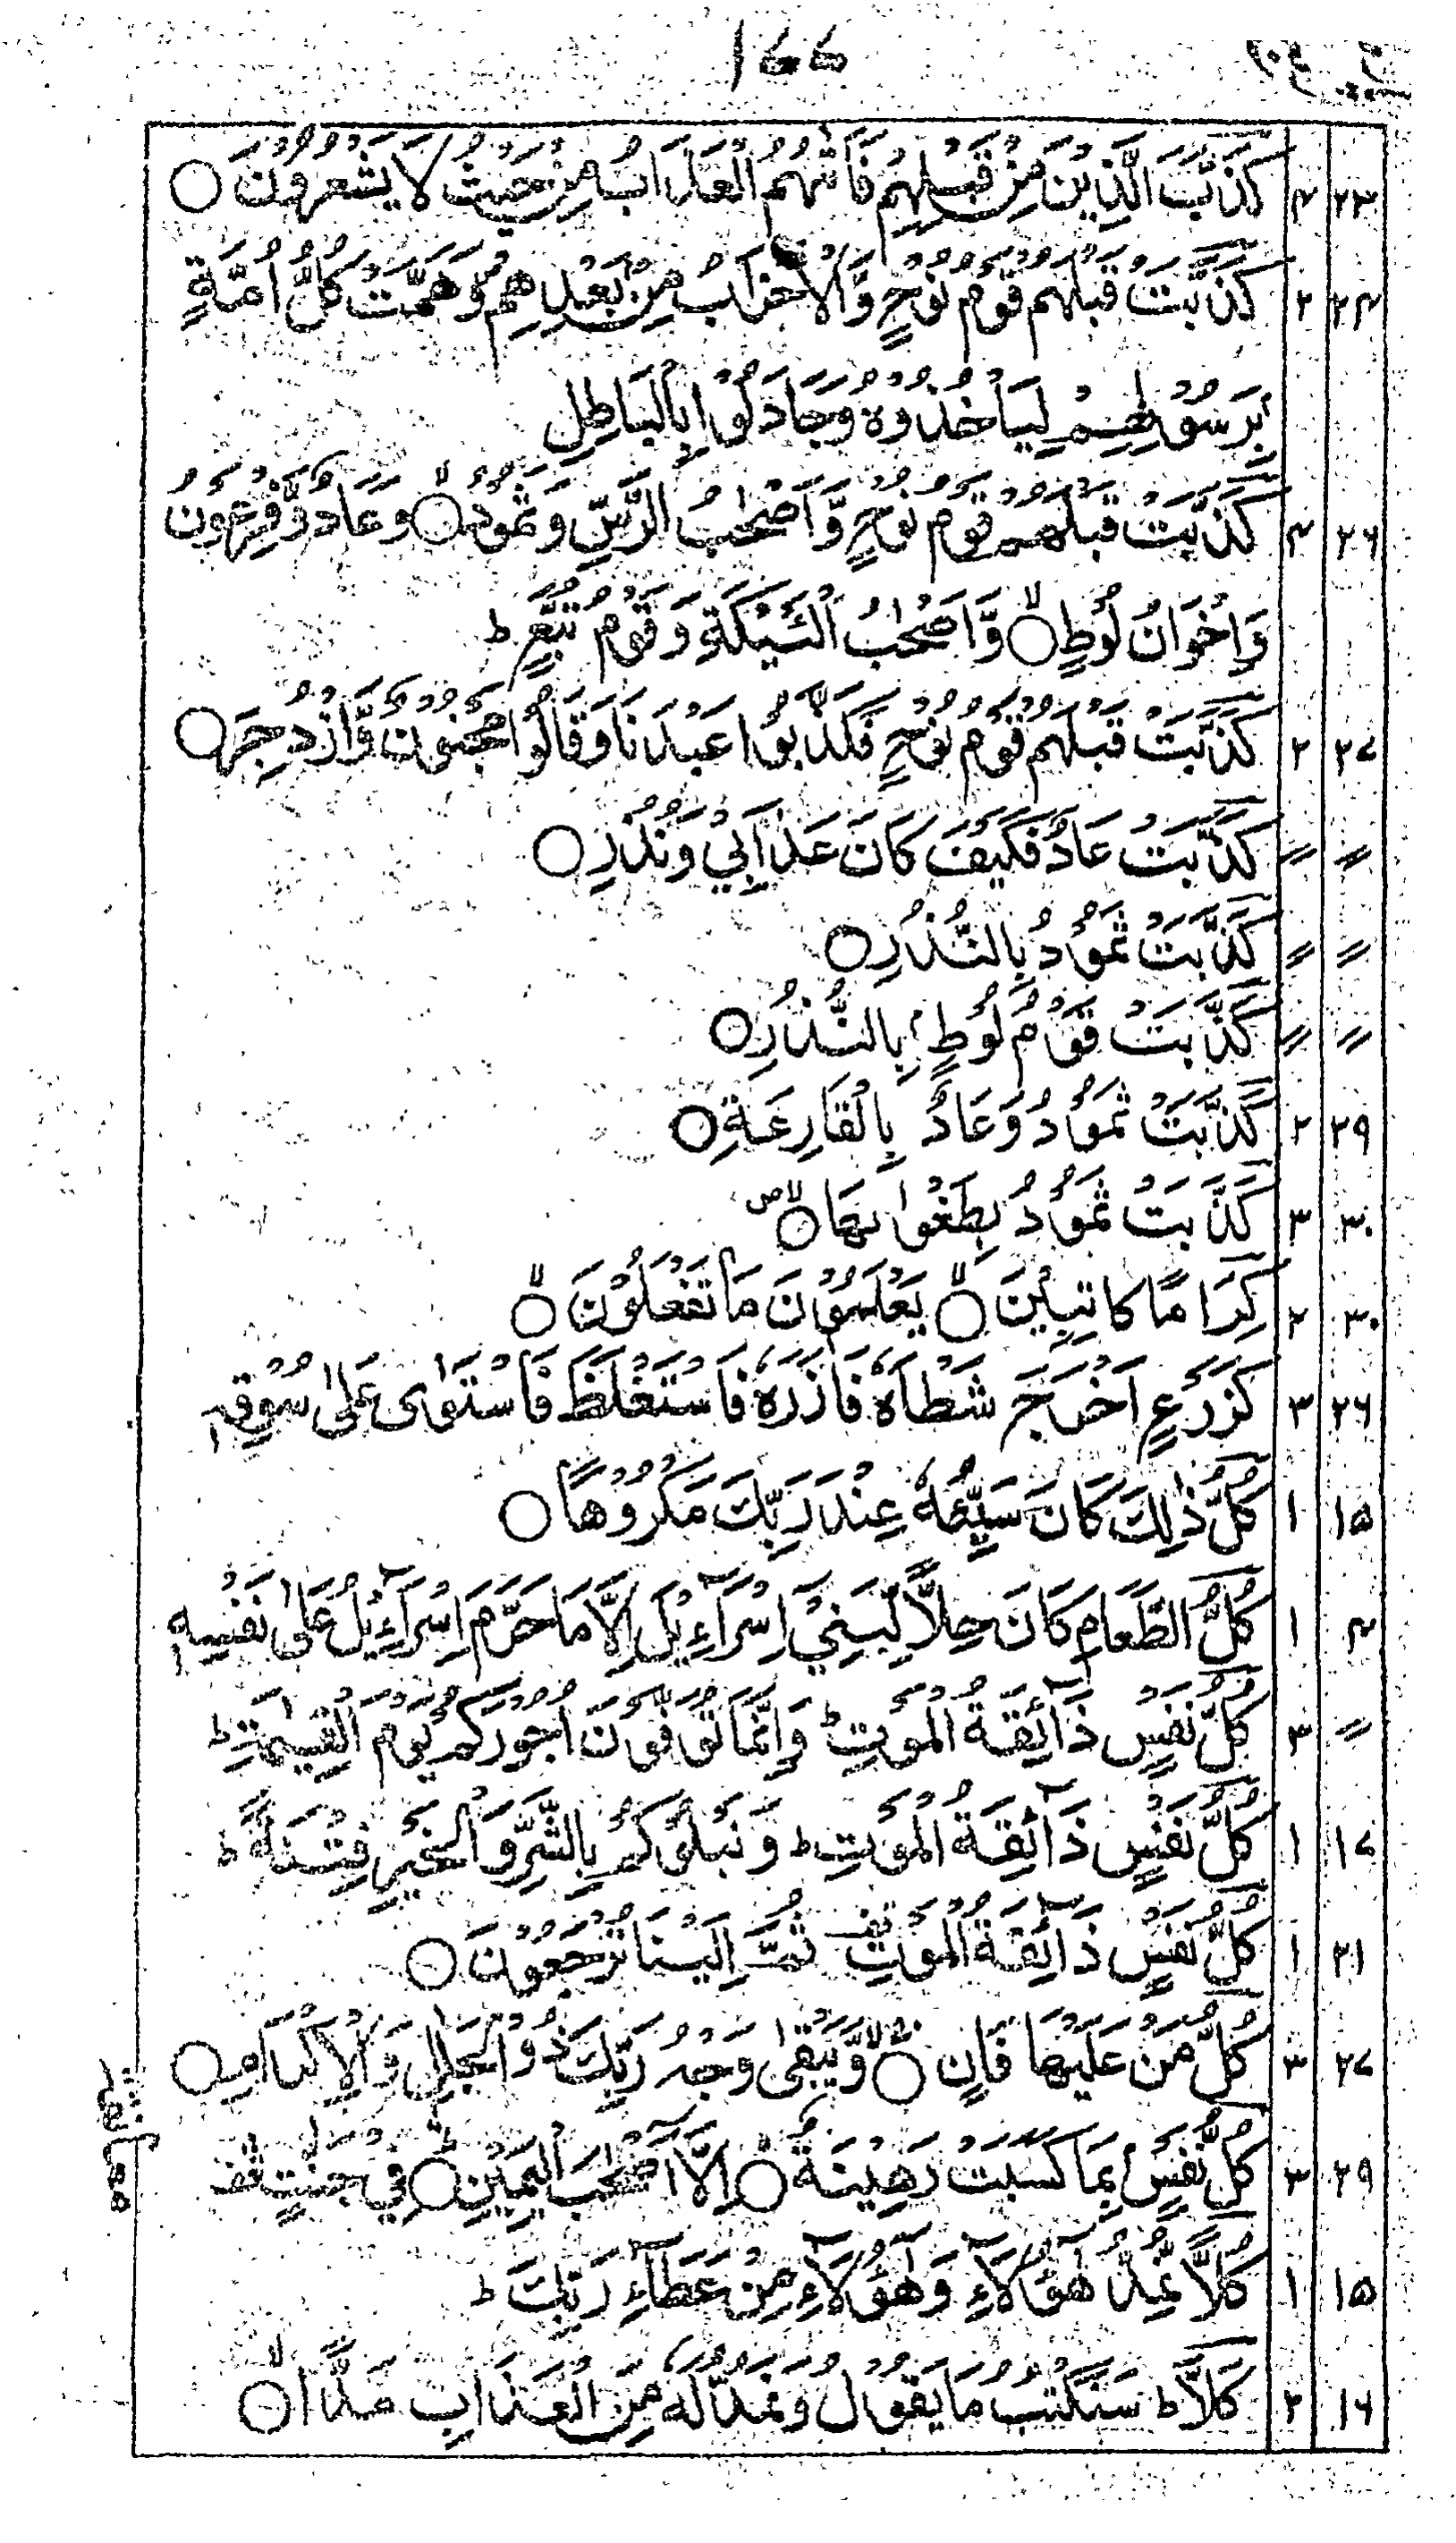 ۱۷۷
۲۳ ۴ كَذَّبَ الَّذِيْنَ مِنْ قَبْلِهِمْ فَاَتٰىهُمُ الْعَذَابُ مِنْ حَيْثُ لَا يَشْعُرُوْنَ ○
۲۴ ۲ كَذَّبَتْ قَبْلَهُمْ قَوْمُ نُوْحٍ وَّالْاَحْزَابُ مِنْ بَعْدِهِمْ وَهَمَّتْ كُلُّ اُمَّةٍ
بِرَسُوْلِهِمْ لِيَاْخُذُوْهُ وَجَادَلُوْا بِالْبَاطِلِ
۲۶ ۴ كَذَّبَتْ قَبْلَهُمْ قَوْمُ نُوْحٍ وَّاَصْحٰبُ الرَّسِّ وَثَمُوْدُ ○ۙ وَعَادٌ وَّفِرْعَوْنُ
وَاِخْوَانُ لُوْطٍ ○ۙ وَّاَصْحٰبُ الْئَيْكَةِ وَقَوْمُ تُبَّعٍ ؕ
۲۷ ۲ كَذَّبَتْ قَبْلَهُمْ قَوْمُ نُوْحٍ فَكَذَّبُوْا عَبْدَنَا وَقَالُوْا مَجْنُوْنٌ وَّازْدُجِرَ ○
〃 〃 كَذَّبَتْ عَادٌ فَكَيْفَ كَانَ عَذَابِيْ وَنُذُرِ ○
〃 〃 كَذَّبَتْ ثَمُوْدُ بِالنُّذُرِ ○
〃 〃 كَذَّبَتْ قَوْمُ لُوْطٍۭ بِالنُّذُرِ ○
۲۹ ۲ كَذَّبَتْ ثَمُوْدُ وَعَادٌۢ بِالْقَارِعَةِ ○
۳۰ ۳ كَذَّبَتْ ثَمُوْدُ بِطَغْوٰىهَا ○ۙ ص
۳۰ ۲ كِرَامًا كَاتِبِيْنَ ○ۙ يَعْلَمُوْنَ مَا تَفْعَلُوْنَ ○ۙ
۲۶ ۳ كَزَرْعٍ اَخْرَجَ شَطْاَهٗ فَاٰزَرَهٗ فَاسْتَغْلَظَ فَاسْتَوٰى عَلٰى سُوْقِهٖ
۱۵ ۱ كُلُّ ذٰلِكَ كَانَ سَيِّئُهٗ عِنْدَ رَبِّكَ مَكْرُوْهًا ○
۴ ۱ كُلُّ الطَّعَامِ كَانَ حِلًّا لِّبَنِيْ اِسْرَآءِيْلَ اِلَّا مَا حَرَّمَ اِسْرَآءِيْلُ عَلٰى نَفْسِهٖ
〃 ۳ كُلُّ نَفْسٍ ذَآئِقَةُ الْمَوْتِ ؕ وَاِنَّمَا تُوَفَّوْنَ اُجُوْرَكُمْ يَوْمَ الْقِيٰمَةِ ؕ
۱۷ ۱ كُلُّ نَفْسٍ ذَآئِقَةُ الْمَوْتِ ؕ وَنَبْلُوْكُمْ بِالشَّرِّ وَالْخَيْرِ فِتْنَةً ؕ
۲۱ ۱ كُلُّ نَفْسٍ ذَآئِقَةُ الْمَوْتِ قف ثُمَّ اِلَيْنَا تُرْجَعُوْنَ ○
۲۷ ۳ كُلُّ مَنْ عَلَيْهَا فَانٍ ○ۚۖ وَّيَبْقٰى وَجْهُ رَبِّكَ ذُو الْجَلٰلِ وَالْاِكْرَامِ ○
۲۹ ۳ كُلُّ نَفْسٍۭ بِمَا كَسَبَتْ رَهِيْنَةٌ ○ۙ اِلَّآ اَصْحٰبَ الْيَمِيْنِ ○ؕۛ فِيْ جَنّٰتٍ قف
۱۵ ۱ كُلًّا نُّمِدُّ هٰٓؤُلَآءِ وَهٰٓؤُلَآءِ مِنْ عَطَآءِ رَبِّكَ ؕ
۱۶ ۲ كَلَّا ؕ سَنَكْتُبُ مَا يَقُوْلُ وَنَمُدُّ لَهٗ مِنَ الْعَذَابِ مَدًّا ○ۙ